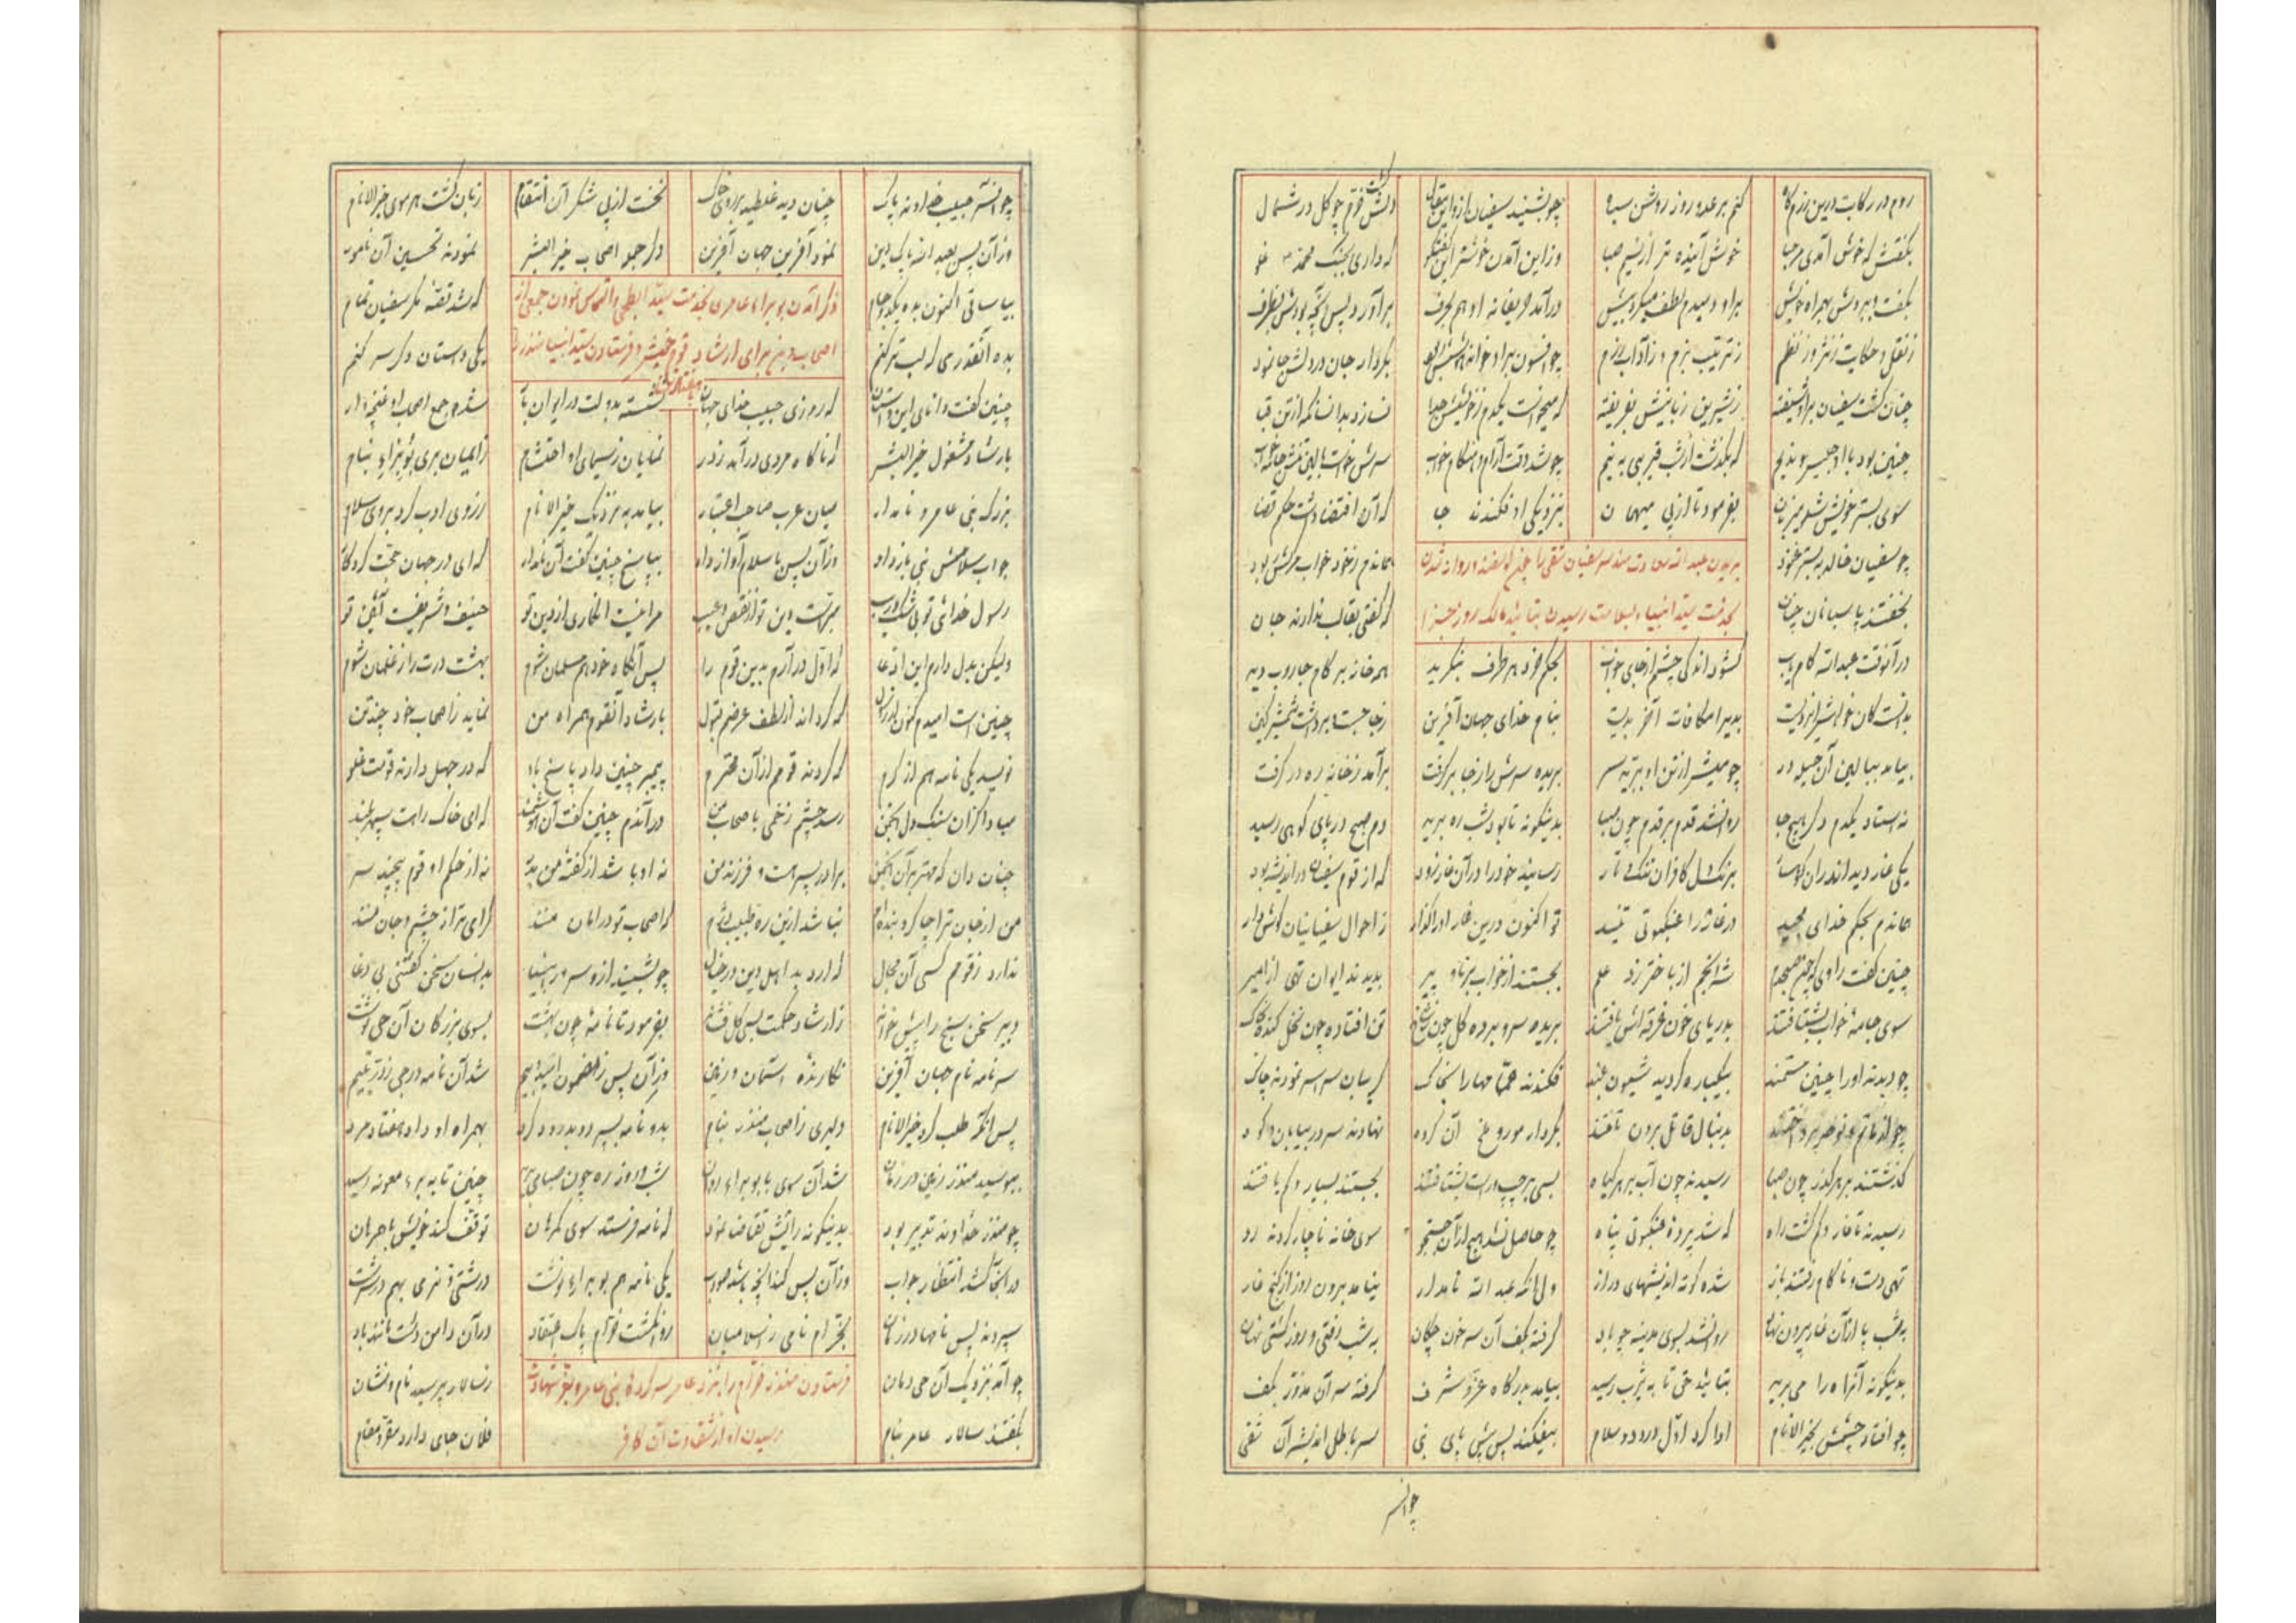 روم در رکابت درین رزم‌گاه کنم بر عدو روز روشن سیاه چو بشنید سفیان ازو این مقال دلش گشت خرم چو گل در شمال
بگفتش که خوش آمدی مرحبا خوش آینده تر از نسیم صبا وزاین آمدن خوشتر این گفتگو که داری بجنگ محمد غلو
بگفت و ببردش بهمراه خویش براو دمبدم لطف میکرد بیش درآمد حریفانه او هم بحرف برآورد پس آنچه بودش بظرف
ز نقل و حکایت ز نثر و ز نظم ز ترتیب بزم و ز آداب رزم چو افسون براو خواند بکردار جان در دلش جا نمود
چنان گشت سفیان براو شیفته ز شیرین زبانیش بفریفته که میخواست یکدم ز خویشش جدا نسازد بدانسانکه از تن قبا
چنین بود با او که بگذشت از شب قریبی به نیم چو شد وقت آرام و هنگام خواب سرش خواست بالین تنش جامه خواب
سوی بستر خویش شد میزبان بفرمود تا از پی میهمان بنزدیکی او فکندند جا که آن اقتضا داشت حکم قضا
چو سفیان خالد به بستر غنود هماندم ز خود خواب مرگش ربود
بریدن عبدالله سعادت مند سر سفیان شقی را چون گوسفند و روان شدن
بخفتند پاسبانان چنان که گفتی بقالب ندارند جان
بخدمت سید انبیاء و بسلامت رسیدن بتائید مالک روز جزا
در آنوقت عبدالله کامیاب گشود اندکی چشم از جای خواب بحکم خرد هر طرف بنگرید همه خانه بر کام جاروب دید
بدانست کان خواب بدبیرا مکافات آخر بدیت بنام خدای جهان آفرین ز جا جست و برداشت شمشیر کین
بیامد ببالین آن حیله ور چو میشش از تن او ببرید سر بریده سرش را ز جا برگرفت برآمد ز خانه ره در گرفت
نه استاد یکدم دگر هیچ جا روانشد قدم بر قدم چون صبا بدینگونه تا بود شب ره برید دم صبح در پای کوهی رسید
یکی غار دید اندران کوهسار برنگ دل کافران تنگ و تار رسانید خود را در آن غار زود که از قوم سفیان در اندیشه بود
هماندم بحکم خدای مجید در غار را عنکبوتی تنید تو اکنون درین غار او را گذار ز احوال سفیانیان گوش دار
چنین گفت راوی که چون صبحدم شه انجم از باختر زد علم بجستند از خواب برنا و پیر بدیدند ایوان تهی از امیر
سوی جامه خواب بشتافتند بدریای خون غرقه اش یافتند بریده سر و برده گل چون ز شاخ تن افتاده چون نخل کنده
چو دیدند او را چنین مستمند بیکباره کردند شیون بلند فکندند عمامها را بخاک گریبان سراسر نمودند چاک
چو از ماتم و نوحه پرداختند بدنبال قاتل برون تاختند بکردار مور و ملخ آن گروه نهادند سر در بیابان و کوه
گذشتند بر هر گذر چون صبا رسیدند چون آب بر هر گیاه بسی هر چپ و راست بشتافتند بجستند بسیار و کم یافتند
رسیدند تا غار و گم گشت راه که شد پردهٔ عنکبوتی پناه چو حاصل نشد هیچ از آن جستجو سوی خانه ناچار کردند رو
تهی دست و ناکام رفتند باز شده کوته اندیشهای دراز ولی آنکه عبدالله نامدار نیامد برون روز از کنج غار
به شب پا از آن غار بیرون نهاد روانشد بسوی مدینه چو باد گرفته بکف آن سر خون چکان به شب رفتی و روز گشتی نهان
بدینگونه آنراه را می برید بتائید حق تا به یثرب رسید بیامد بدرگاه عز و شرف گرفته سر آن مزور بکف
چو افتاد چشمش بخیرالانام ادا کرد اول درود و سلام بیفکند پس پیش پای نبی سر باطل اندیش آن شقی
چو آنسر
چو آنسر حبیب خداوند پاک چنان دید غلطیده بر روی خاک نخست از پی شکر آن انتقام زبان گشت هر موی خیرالانام
وزآن پس بعبدالله پاک دین نمود آفرین جهان آفرین دگر جمله اصحاب خیرالبشر نمودند تحسین آن نامور
بیا ساقی اکنون بده یکدو جام که شد قصه مکر سفیان تمام
ذکر آمدن بوبراء عامری بخدمت سید ابطحی و التماس نمودن جمعی از
بده آنقدر می که لب تر کنم یکی داستان دگر سر کنم
اصحاب دین برای ارشاد قوم خویش و فرستادن سید انبیا منذر را
چنین گفت دانای این داستان که روزی حبیب خدای جهان نشسته بدولت در ایوان شده جمع اصحاب او
بارشاد مشغول خیرالبشر که ناگاه مردی درآمد ز در نمایان ز سیمای او احتشام ز ایمان بری بوبراء بنام
بزرگ بنی عامر و نامدار میان عرب صاحب اعتبار بیامد به نزدیک خیرالانام ز روی ادب کرد بروی سلام
جواب سلامش نبی باز داد وزآن پس باسلام آواز داد بپاسخ چنین گفت آن نامدار که ای در جهان حجت کردگار
رسول خدائی تو بی شک و ریب مبراست دین تو از نقص و عیب مرا نیست انکاری از دین تو حنیف و شریفست آئین تو
ولیکن بدل دارم این ادعا که اول درآرم بدین قوم را پس آنگاه خود هم مسلمان شوم بهشت درت را ز غلمان شوم
چنین است امیدم کنون که گرداند از لطف عرضم قبول بارشاد آنقوم همراه من نماید ز اصحاب خود چند تن
نویسد یکی نامه هم از کرم که گردند قومم از آن محترم پیمبر چنین داد پاسخ باو که در جهل دارند قومت غلو
مباد اکزان سنگ دل انجمن رسد چشم زخمی باصحاب من در آندم چنین گفت آن هوشمند که ای خاک راهت سپهر بلند
چنان دان که مهتر بر آن انجمن برادر پسر هست و فرزند من نه او باشد از گفتهٔ من بدر نه از حکم او قوم پیچند سر
من از جان ترا چاکر و بنده ام که اصحاب تو در امان منند گرامی تر از چشم و جان منند
ندارد ز قومم کسی آن مجال که آرد بد اهل دین در خیال چو بشنید ازو سرور انبیا بدانسان سخن گفتنی بی دغا
دبیر سخن سنج را پیش خواند ز ارشاد و حکمت بسی گل فشاند بفرمود تا نامهٔ چون بهشت بسوی بزرگان آن حی نوشت
سر نامه نام جهان آفرین نگارندهٔ آسمان و زمین وزآن پس ز مضمون امید و بیم شد آن نامه درجی ز در یتیم
پس آنگه طلب کرد خیرالانام دلیری ز اصحاب منذر بنام بدو نامه بسپرد و بدرود کرد بهمراه او داد هفتاد مرد
ببوسید منذر زمین در زمان شد آن سوی با بوبراء روان شب و روز ره چون صبا می برید چنین تا به بیر معونه رسید
چو منذر خداوند تدبیر بود بدینگونه رایش تقاضا نمود که نامه فرستد سوی گمرهان توقف کند خویش با همرهان
در آنجا کشد انتظار جواب وزآن پس کند آنچه باشد صواب یکی نامه هم بوبراء نوشت درشتی و نرمی بهم در سرشت
سپردند پس نامها در زمان بحرام نامی ز اسلامیان روان گشت حرام پاک اعتقاد در آن دامن دشت مانند باد
چو آمد بنزدیک آن حی دمان ز سالار پرسید نام و نشان
فرستادن منذر حرام را بنزد عامر سرکردهٔ بنی عامر و بشهادت
بگفتند سالار عامر بنام فلان جای دارد مقر و مقام
رسیدن او از شقاوت آن کافر